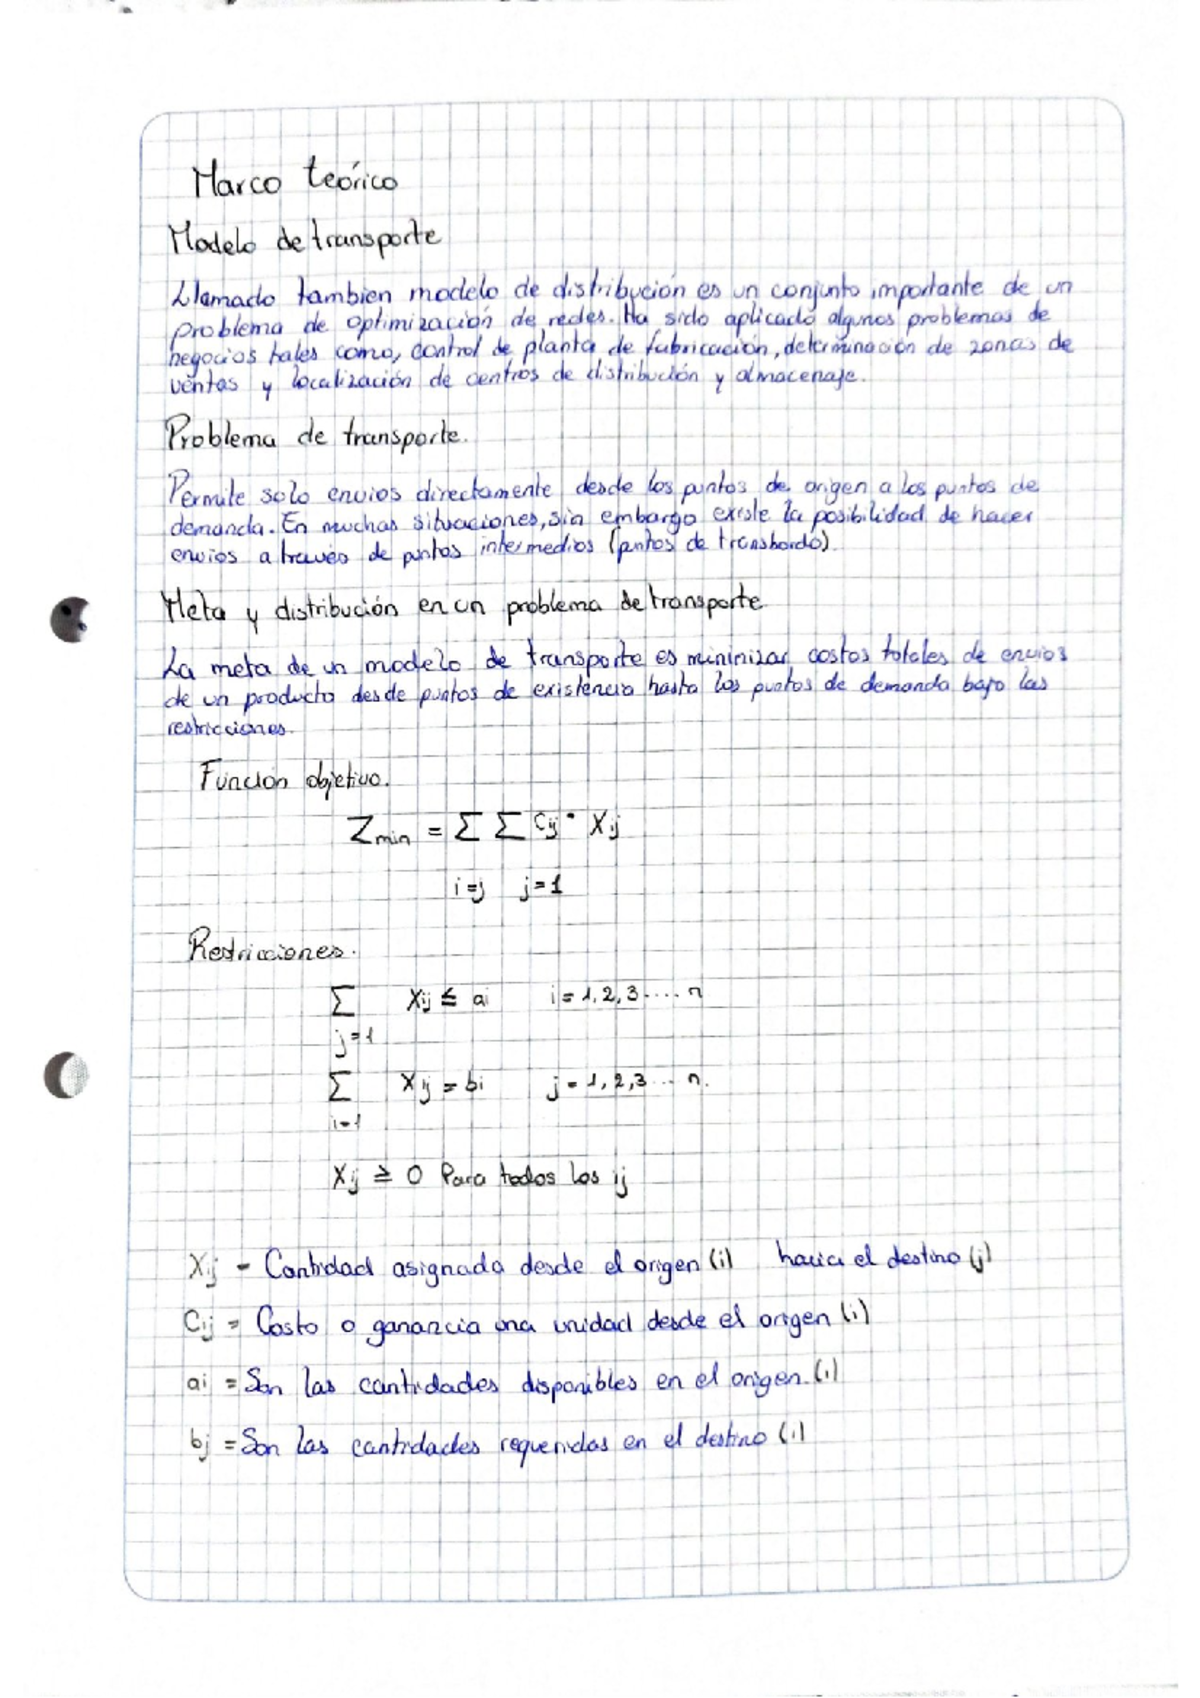 Marco teórico
Modelo de transporte
Llamado tambien modelo de distribución es un conjunto importante de un
problema de optimización de redes. Ha sido aplicado algunos problemas de
negocios tales como, control de planta de fabricación, determinación de zonas de
ventas y localización de centros de distribución y almacenaje.
Problema de transporte.
Permite solo envios directamente desde los puntos de origen a los puntos de
demanda. En muchas situaciones, sin embargo existe la posibilidad de hacer
envios a través de puntos intermedios (puntos de transbordo).
Meta y distribución en un problema de transporte
La meta de un modelo de transporte es minimizar costos totales de envios
de un producto desde puntos de existencia hasta los puntos de demanda bajo las
restricciones.
Función objetivo.
Zmin = Σ Σ Cij · Xij
i=j j=1
Restricciones.
Σ Xij ≤ ai i = 1, 2, 3 .... n
j=1
Σ Xij = bi j = 1, 2, 3 ... n.
i=1
Xij ≥ 0 Para todos los ij
Xij = Cantidad asignada desde el origen (i) hacia el destino (j)
Cij = Costo o ganancia una unidad desde el origen (i)
ai = Son las cantidades disponibles en el origen (i)
bj = Son las cantidades requeridas en el destino (i)